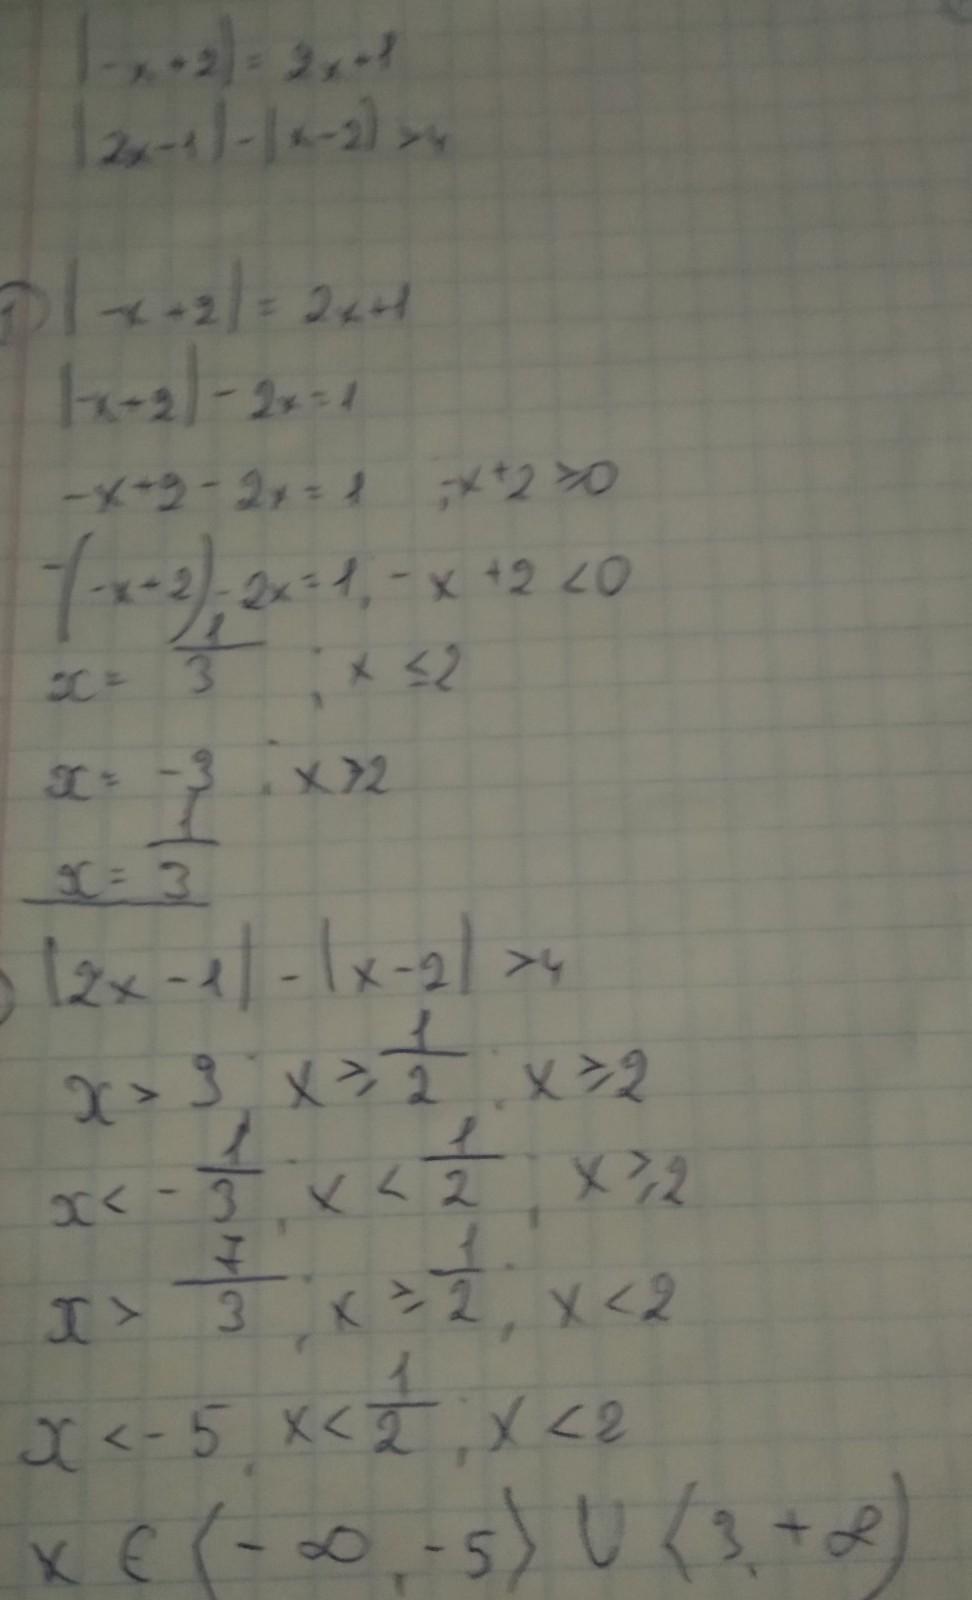 |-x+2|= 2x+1
|2x-1|-|x-2|>4
1) |-x+2|= 2x+1
|-x+2|-2x=1
-x+2-2x=1 ; -x+2≥0
-(-x+2)-2x=1, -x+2<0
x= 1/3 ; x≤2
x= -3 ; x>2
x= 1/3
|2x-1|-|x-2|>4
x>3, x≥1/2 ; x≥2
x<-1/3 ; x<1/2 ; x≥2
x>7/3 ; x≥1/2 ; x<2
x<-5, x<1/2 ; x<2
x∈(-∞,-5)∪(3,+∞)